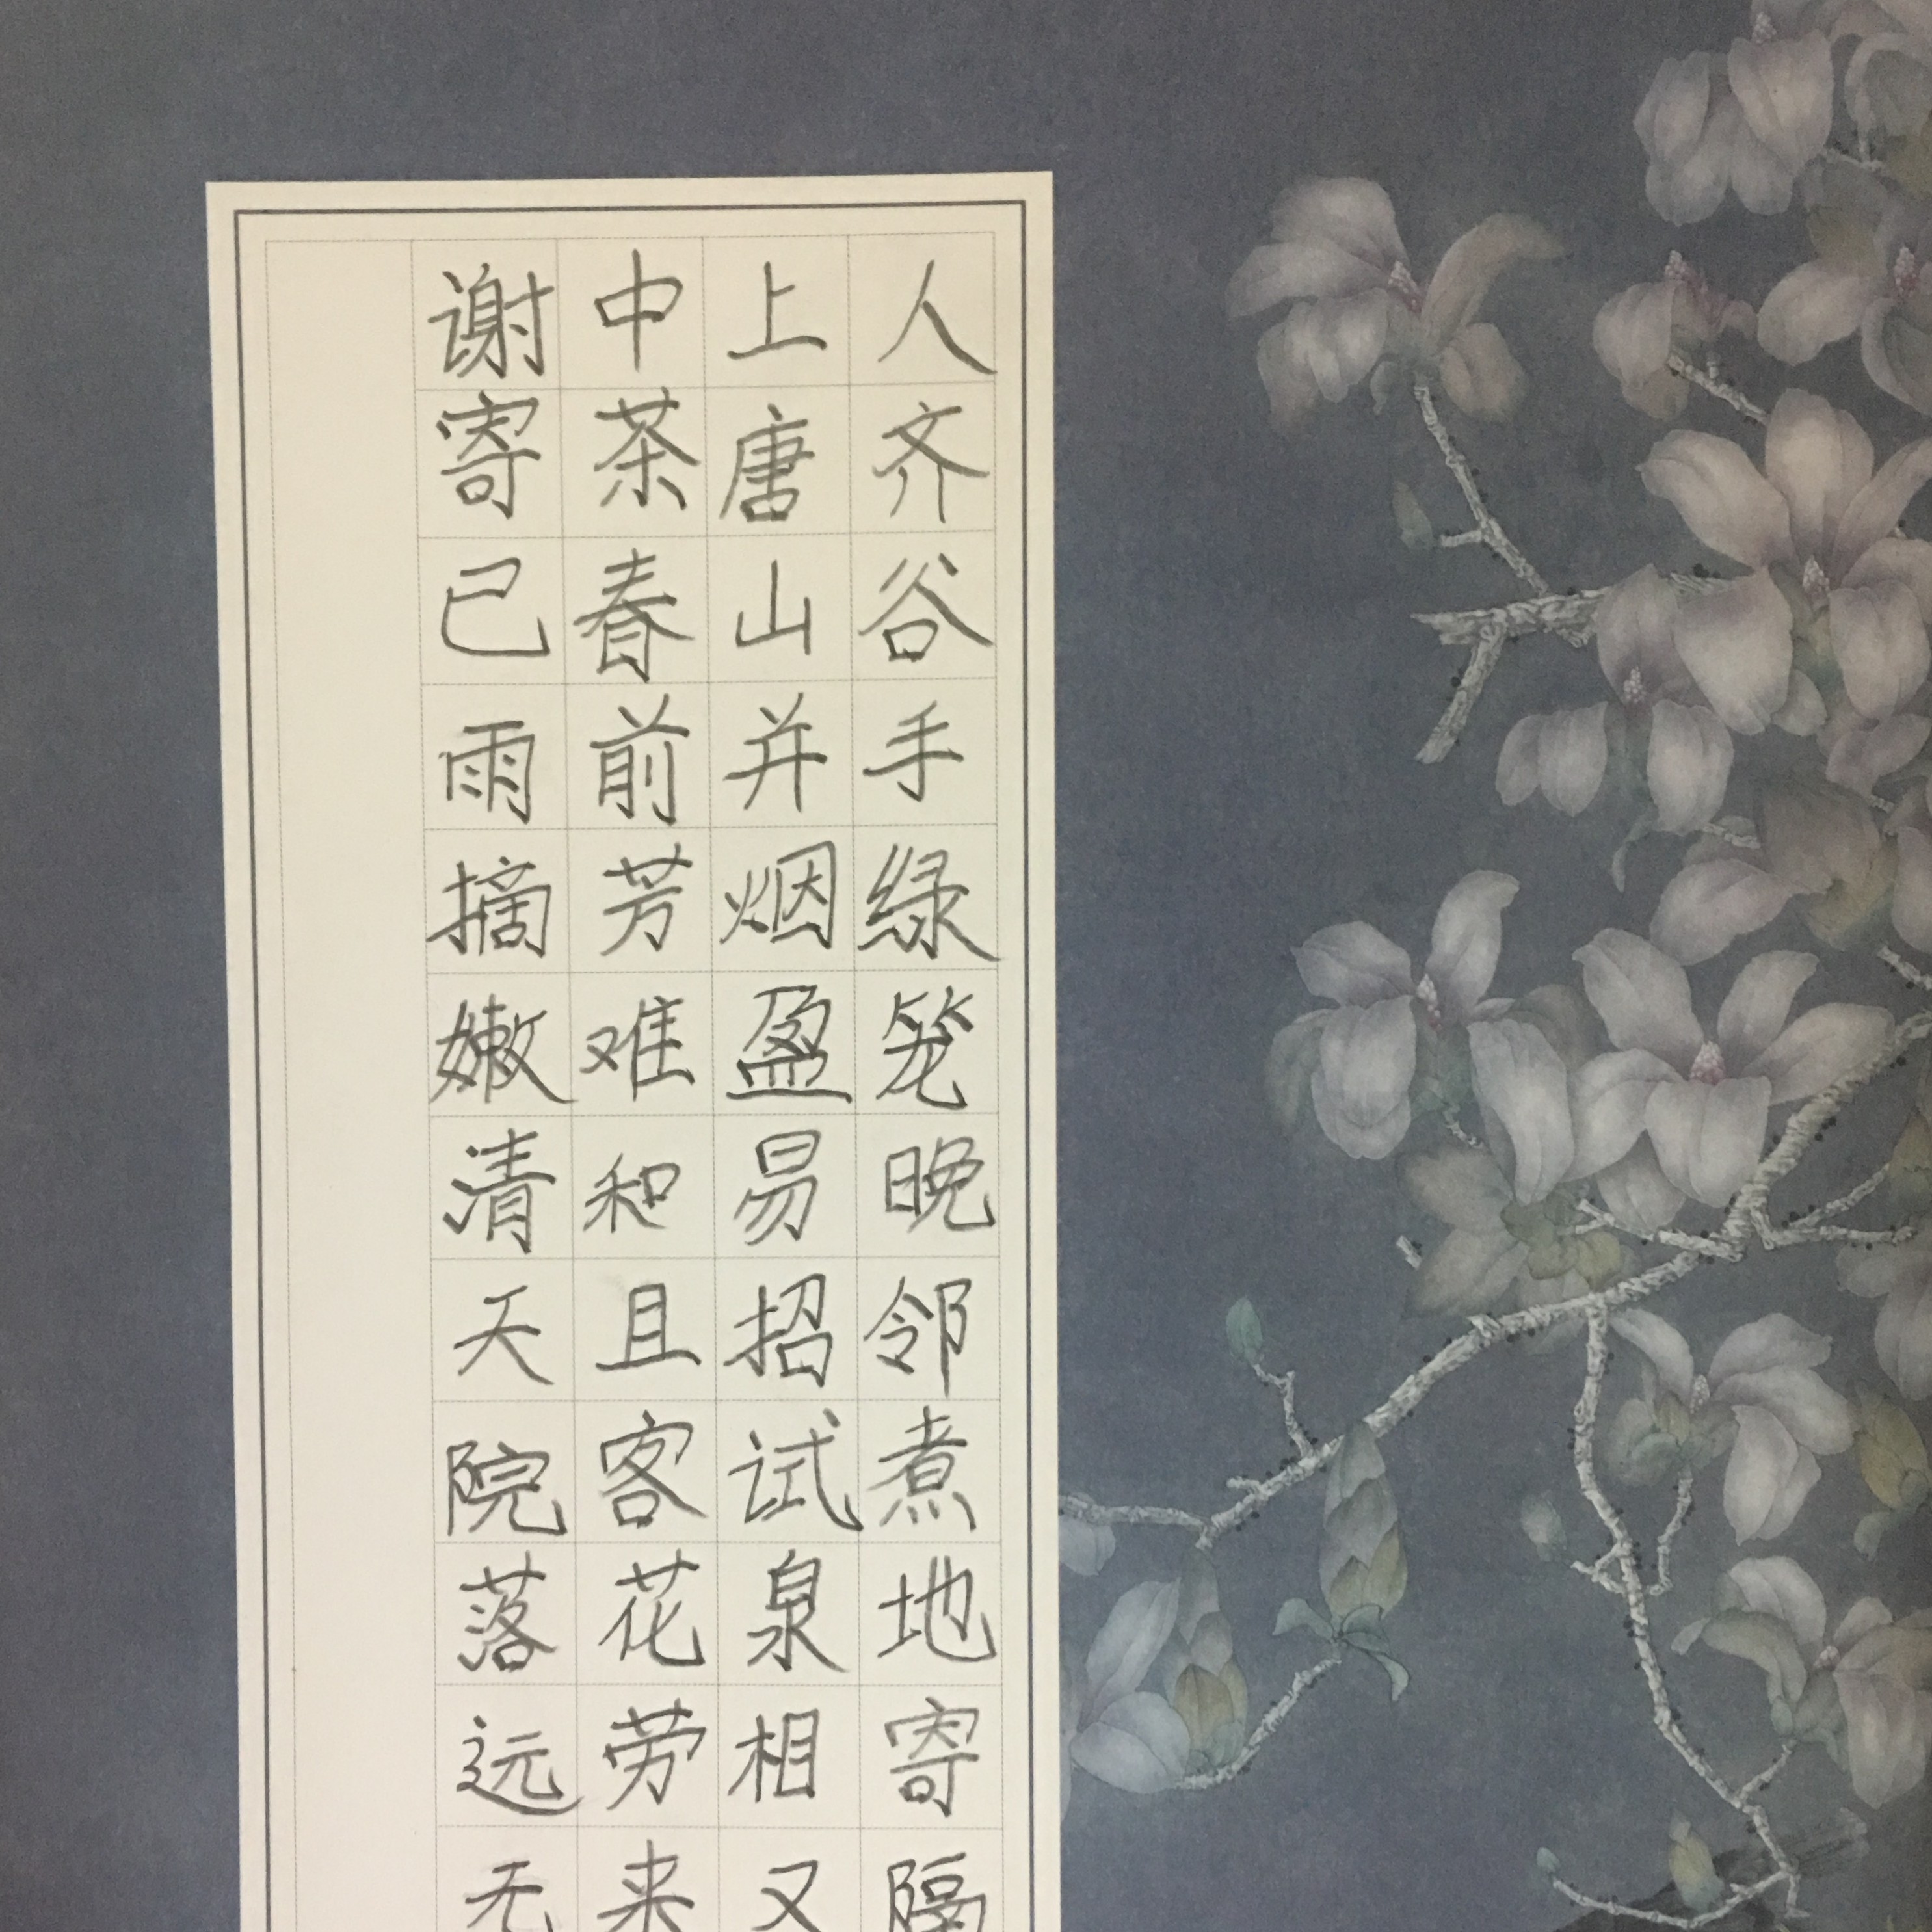 谢中上人
寄茶唐齐
己春山谷
雨前并手
摘芳烟绿
嫩难盈笼
清和易晚
天且招邻
院客试煮
落花泉地
远劳相寄
无来又隔